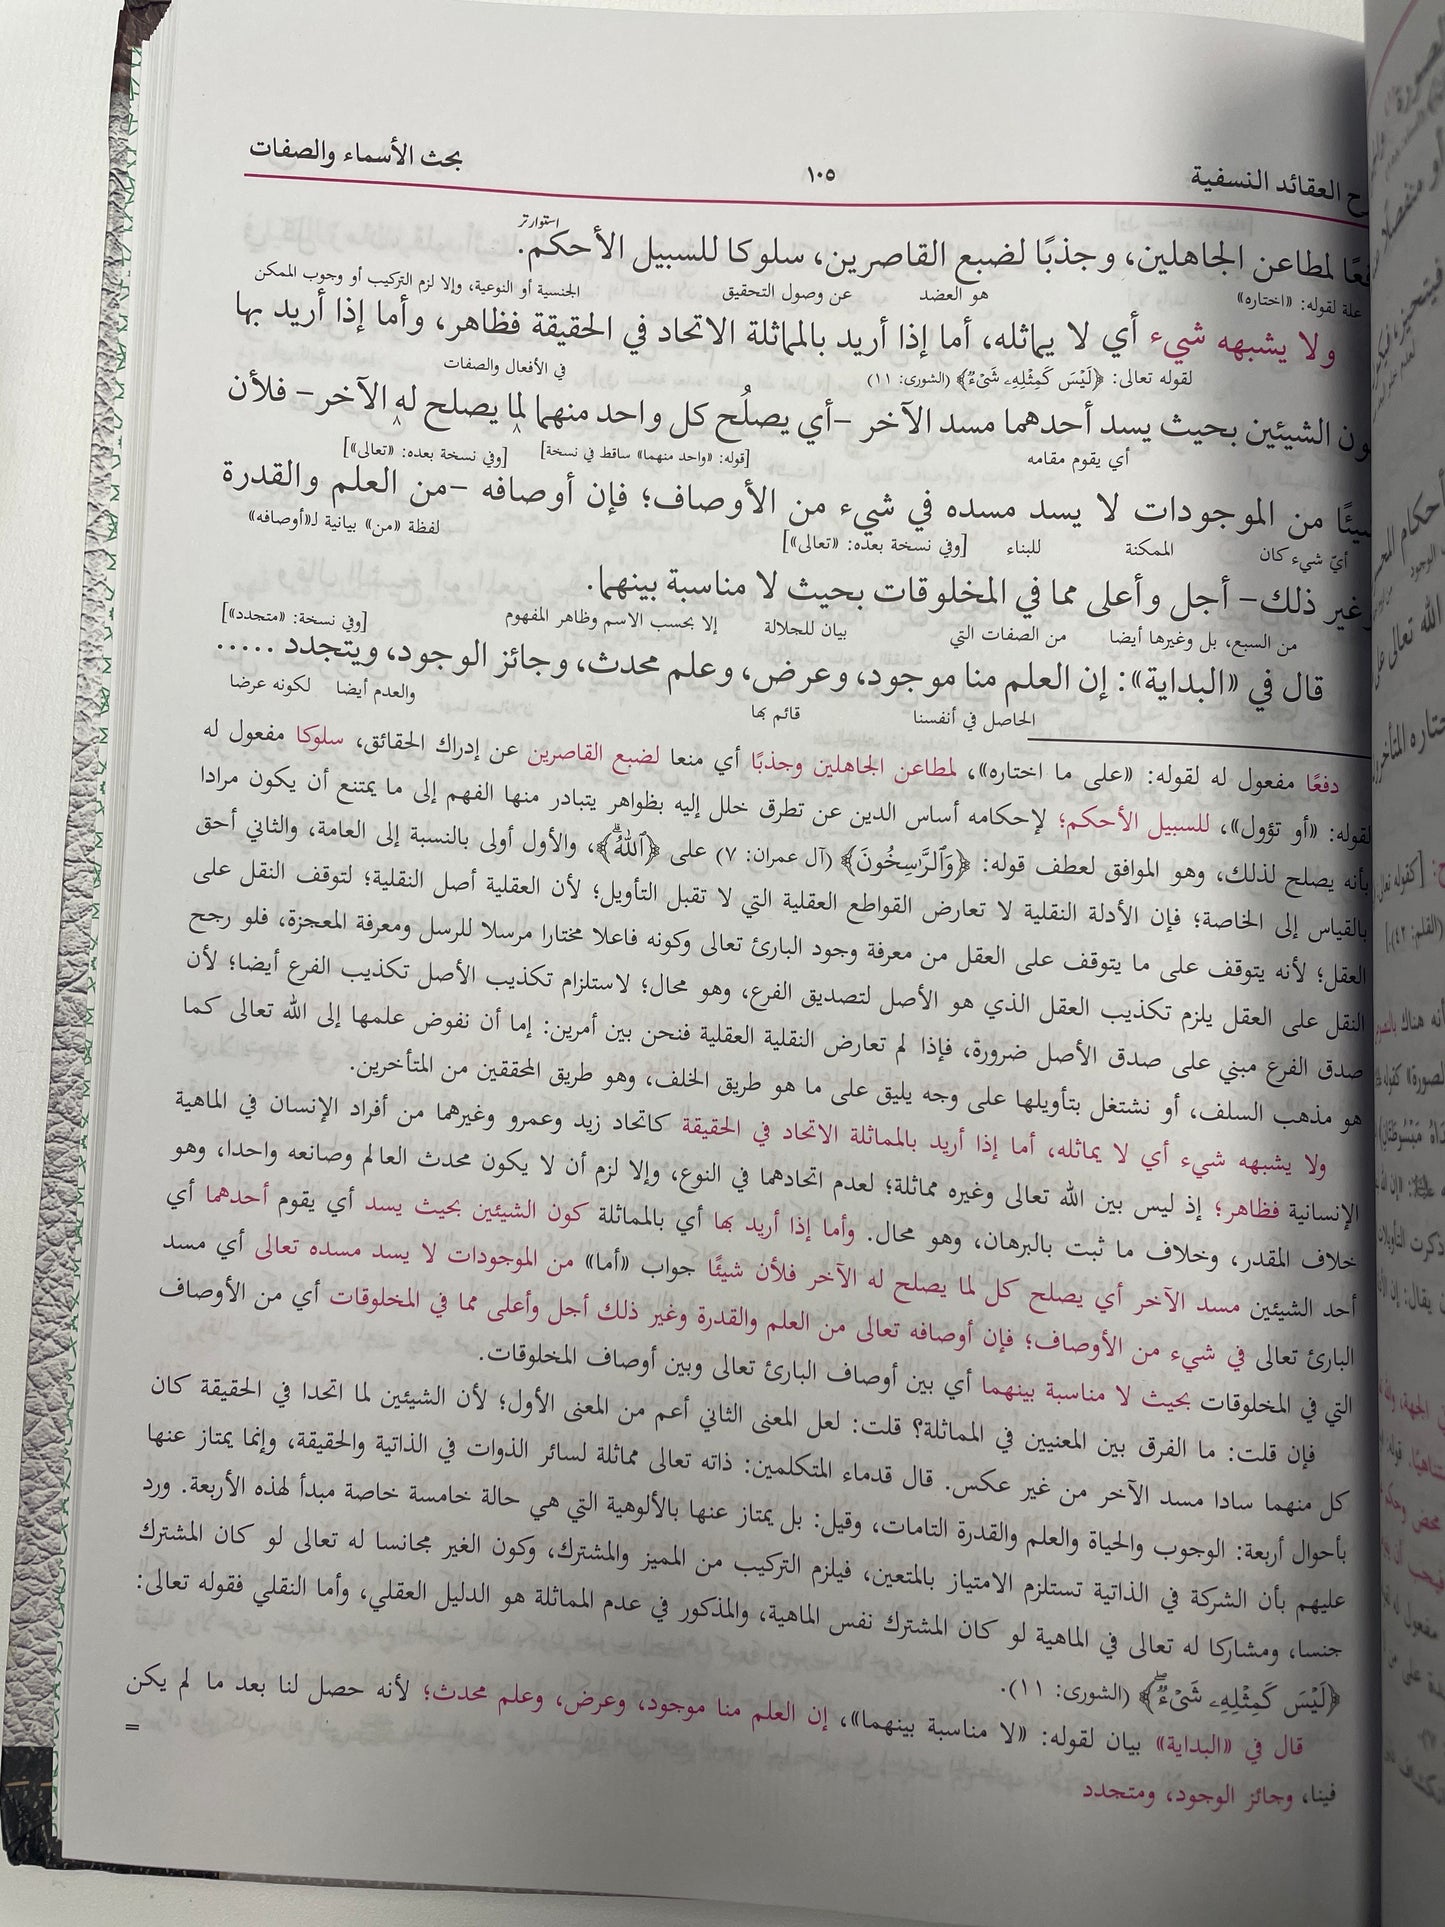 العقائد النسفية ١٠٥ بحث الأسماء والصفات
لمطاعن الجاهلين، وجذبًا لضبع القاصرين، سلوكا للسبيل الأحكم.
استوارتر
علة لقوله: «اختاره» هو العضد عن وصول التحقيق الجنسية أو النوعية، وإلا لزم التركيب أو وجوب الممكن
ولا يشبهه شيء أي لا يماثله، أما إذا أريد بالمماثلة الاتحاد في الحقيقة فظاهر، وأما إذا أريد بها
لقوله تعالى: ﴿لَيْسَ كَمِثْلِهِۦ شَىْءٌ﴾ (الشورى: ١١) في الأفعال والصفات
الشيئين بحيث يسد أحدهما مسد الآخر –أي يصلُح كل واحد منهما لما يصلح له الآخر– فلأن
أي يقوم مقامه [قوله: «واحد منهما» ساقط في نسخة] [وفي نسخة بعده: «تعالى»]
من الموجودات لا يسد مسده في شيء من الأوصاف؛ فإن أوصافه –من العلم والقدرة
أيّ شيء كان الممكنة للبناء [وفي نسخة بعده: «تعالى»] لفظة «من» بيانية لـ«أوصافه»
غير ذلك– أجل وأعلى مما في المخلوقات بحيث لا مناسبة بينهما.
من السبع، بل وغيرها أيضا من الصفات التي بيان للجلالة إلا بحسب الاسم وظاهر المفهوم [وفي نسخة: «متجدد»]
قال في «البداية»: إن العلم منا موجود، وعرض، وعلم محدث، وجائز الوجود، ويتجدد .....
الحاصل في أنفسنا قائم بها والعدم أيضا لكونه عرضا
دفعًا مفعول له لقوله: «على ما اختاره»، لمطاعن الجاهلين وجذبًا أي منعا لضبع القاصرين عن إدراك الحقائق، سلوكا مفعول له
لقوله: «أو تؤول»، للسبيل الأحكم؛ لإحكامه أساس الدين عن تطرق خلل إليه بظواهر يتبادر منها الفهم إلى ما يمتنع أن يكون مرادا
بأنه يصلح لذلك، وهو الموافق لعطف قوله: ﴿وَٱلرَّٰسِخُونَ﴾ (آل عمران: ٧) على ﴿ٱللَّهُ﴾، والأول أولى بالنسبة إلى العامة، والثاني أحق
بالقياس إلى الخاصة؛ فإن الأدلة النقلية لا تعارض القواطع العقلية التي لا تقبل التأويل؛ لأن العقلية أصل النقلية؛ لتوقف النقل على
العقل؛ لأنه يتوقف على ما يتوقف على العقل من معرفة وجود البارئ تعالى وكونه فاعلا مختارا مرسلا للرسل ومعرفة المعجزة، فلو رجح
النقل على العقل يلزم تكذيب العقل الذي هو الأصل لتصديق الفرع، وهو محال؛ لاستلزام تكذيب الأصل تكذيب الفرع أيضا؛ لأن
صدق الفرع مبني على صدق الأصل ضرورة، فإذا لم تعارض النقلية العقلية فنحن بين أمرين: إما أن نفوض علمها إلى الله تعالى كما
هو مذهب السلف، أو نشتغل بتأويلها على وجه يليق على ما هو طريق الخلف، وهو طريق المحققين من المتأخرين.
ولا يشبهه شيء أي لا يماثله، أما إذا أريد بالمماثلة الاتحاد في الحقيقة كاتحاد زيد وعمرو وغيرهما من أفراد الإنسان في الماهية
الإنسانية فظاهر؛ إذ ليس بين الله تعالى وغيره مماثلة؛ لعدم اتحادهما في النوع، وإلا لزم أن لا يكون محدث العالم وصانعه واحدا، وهو
خلاف المقدر، وخلاف ما ثبت بالبرهان، وهو محال. وأما إذا أريد بها أي بالمماثلة كون الشيئين بحيث يسد أي يقوم أحدهما أي
أحد الشيئين مسد الآخر أي يصلح كل لما يصلح له الآخر فلأن شيئًا جواب «أما» من الموجودات لا يسد مسده تعالى أي مسد
البارئ تعالى في شيء من الأوصاف؛ فإن أوصافه تعالى من العلم والقدرة وغير ذلك أجل وأعلى مما في المخلوقات أي من الأوصاف
التي في المخلوقات بحيث لا مناسبة بينهما أي بين أوصاف البارئ تعالى وبين أوصاف المخلوقات.
فإن قلت: ما الفرق بين المعنيين في المماثلة؟ قلت: لعل المعنى الثاني أعم من المعنى الأول؛ لأن الشيئين لما اتحدا في الحقيقة كان
كل منهما سادا مسد الآخر من غير عكس. قال قدماء المتكلمين: ذاته تعالى مماثلة لسائر الذوات في الذاتية والحقيقة، وإنما يمتاز عنها
بأحوال أربعة: الوجوب والحياة والعلم والقدرة التامات، وقيل: بل يمتاز عنها بالألوهية التي هي حالة خامسة خاصة مبدأ لهذه الأربعة. ورد
عليهم بأن الشركة في الذاتية تستلزم الامتياز بالمتعين، فيلزم التركيب من المميز والمشترك، وكون الغير مجانسا له تعالى لو كان المشترك
جنسا، ومشاركا له تعالى في الماهية لو كان المشترك نفس الماهية، والمذكور في عدم المماثلة هو الدليل العقلي، وأما النقلي فقوله تعالى:
﴿لَيْسَ كَمِثْلِهِۦ شَىْءٌ﴾ (الشورى: ١١).
قال في «البداية» بيان لقوله: «لا مناسبة بينهما»، إن العلم منا موجود، وعرض، وعلم محدث؛ لأنه حصل لنا بعد ما لم يكن
فينا، وجائز الوجود، ومتجدد =